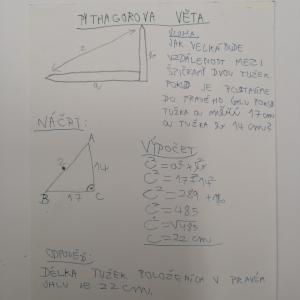 PYTHAGOROVA VĚTA
ÚLOHA:
JAK VELKÁ BUDE
VZDÁLENOST MEZI
ŠPIČKAMI DVOU TUŽEK
POKUD JE POSTAVÍME
DO PRAVÉHO ÚHLU POKUD
TUŽKA a MĚŘÍ 17 cm
a TUŽKA b 14 cm?
z
b
a
NÁČRT:
A
z
14
B 17 C
VÝPOČET
C² = a² + b²
C² = 17² + 14²
C² = 289 + 196
C² = 485
C = √485
C = 22 cm
ODPOVĚĎ:
DÉLKA TUŽEK POLOŽENÝCH V PRAVÉM
ÚHLU JE 22 CM.